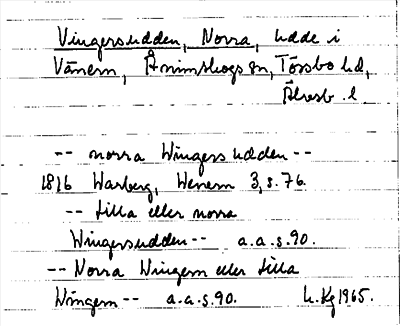 Vingersudden, Norra, udde i
Vänern, Ånimskogs sn, Tössbo hd,
Älvsb. l
-- norra Wingersudden --
1816 Warberg, Wenern 3, s. 76.
-- lilla eller norra
Wingersudden -- a.a.s. 90.
-- Norra Wingern eller lilla
Wingern -- a.a.s. 90. 1965.